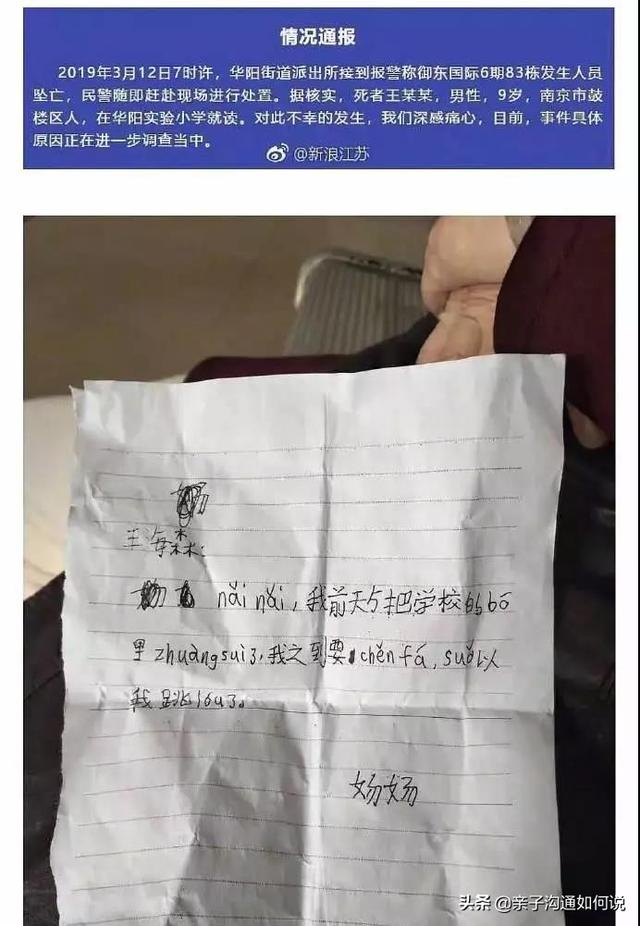 情况通报
2019年3月12日7时许，华阳街道派出所接到报警称御东国际6期83栋发生人员
坠亡，民警随即赶赴现场进行处置。据核实，死者王某某，男性，9岁，南京市鼓
楼区人，在华阳实验小学就读。对此不幸的发生，我们深感痛心，目前，事件具体
原因正在进一步调查当中。
@新浪江苏
nǎi nǎi，我前天把学校的bō
里zhuàng suì了，我之到要chěn fá，suǒ以
我跳lóu了。
头条 @亲子沟通如何说